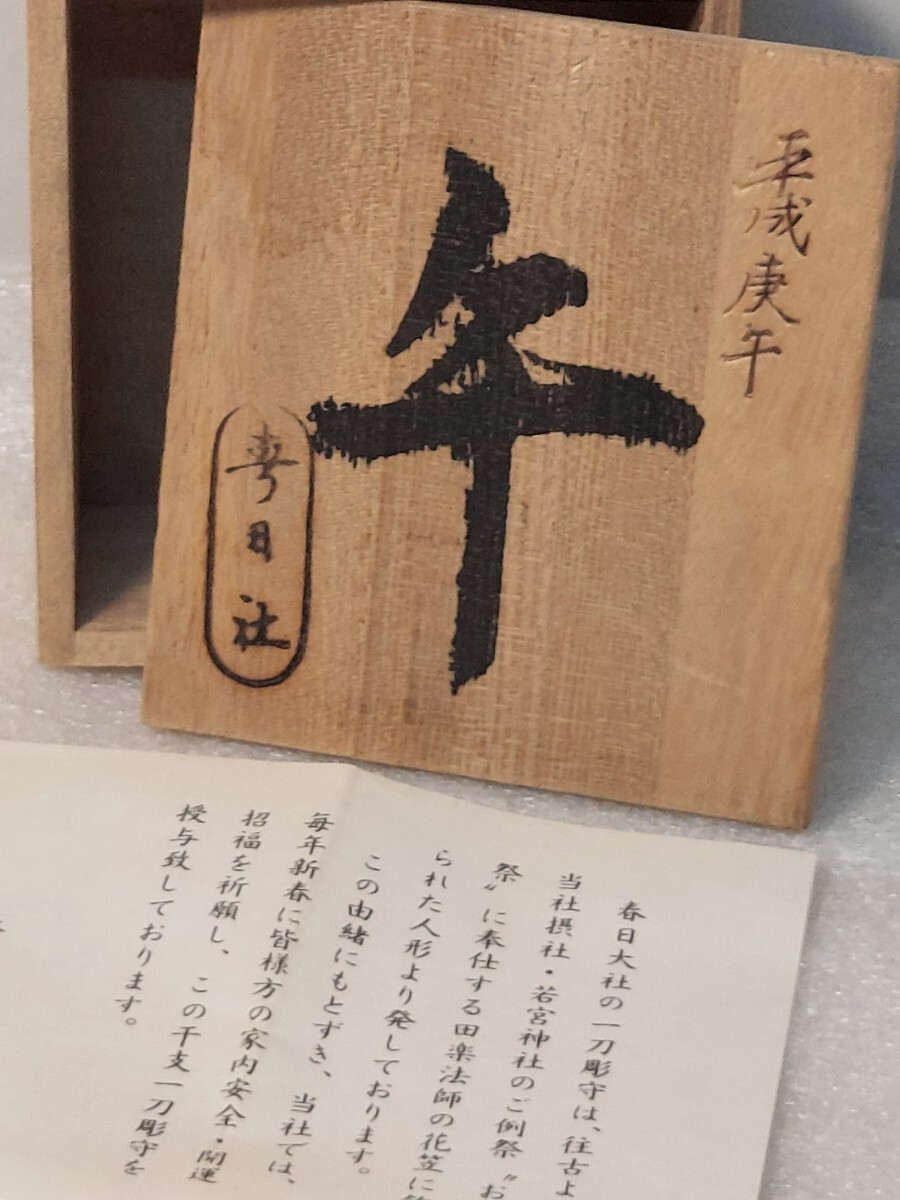 平成庚午
午
春日社
春日大社の一刀彫守は、往古よ
当社摂社・若宮神社のご例祭〝お
祭〟に奉仕する田楽法師の花笠に
られた人形より発しております。
この由緒にもとずき、当社では、
毎年新春に皆様方の家内安全・開運
招福を祈願し、この干支一刀彫守を
授与致しております。